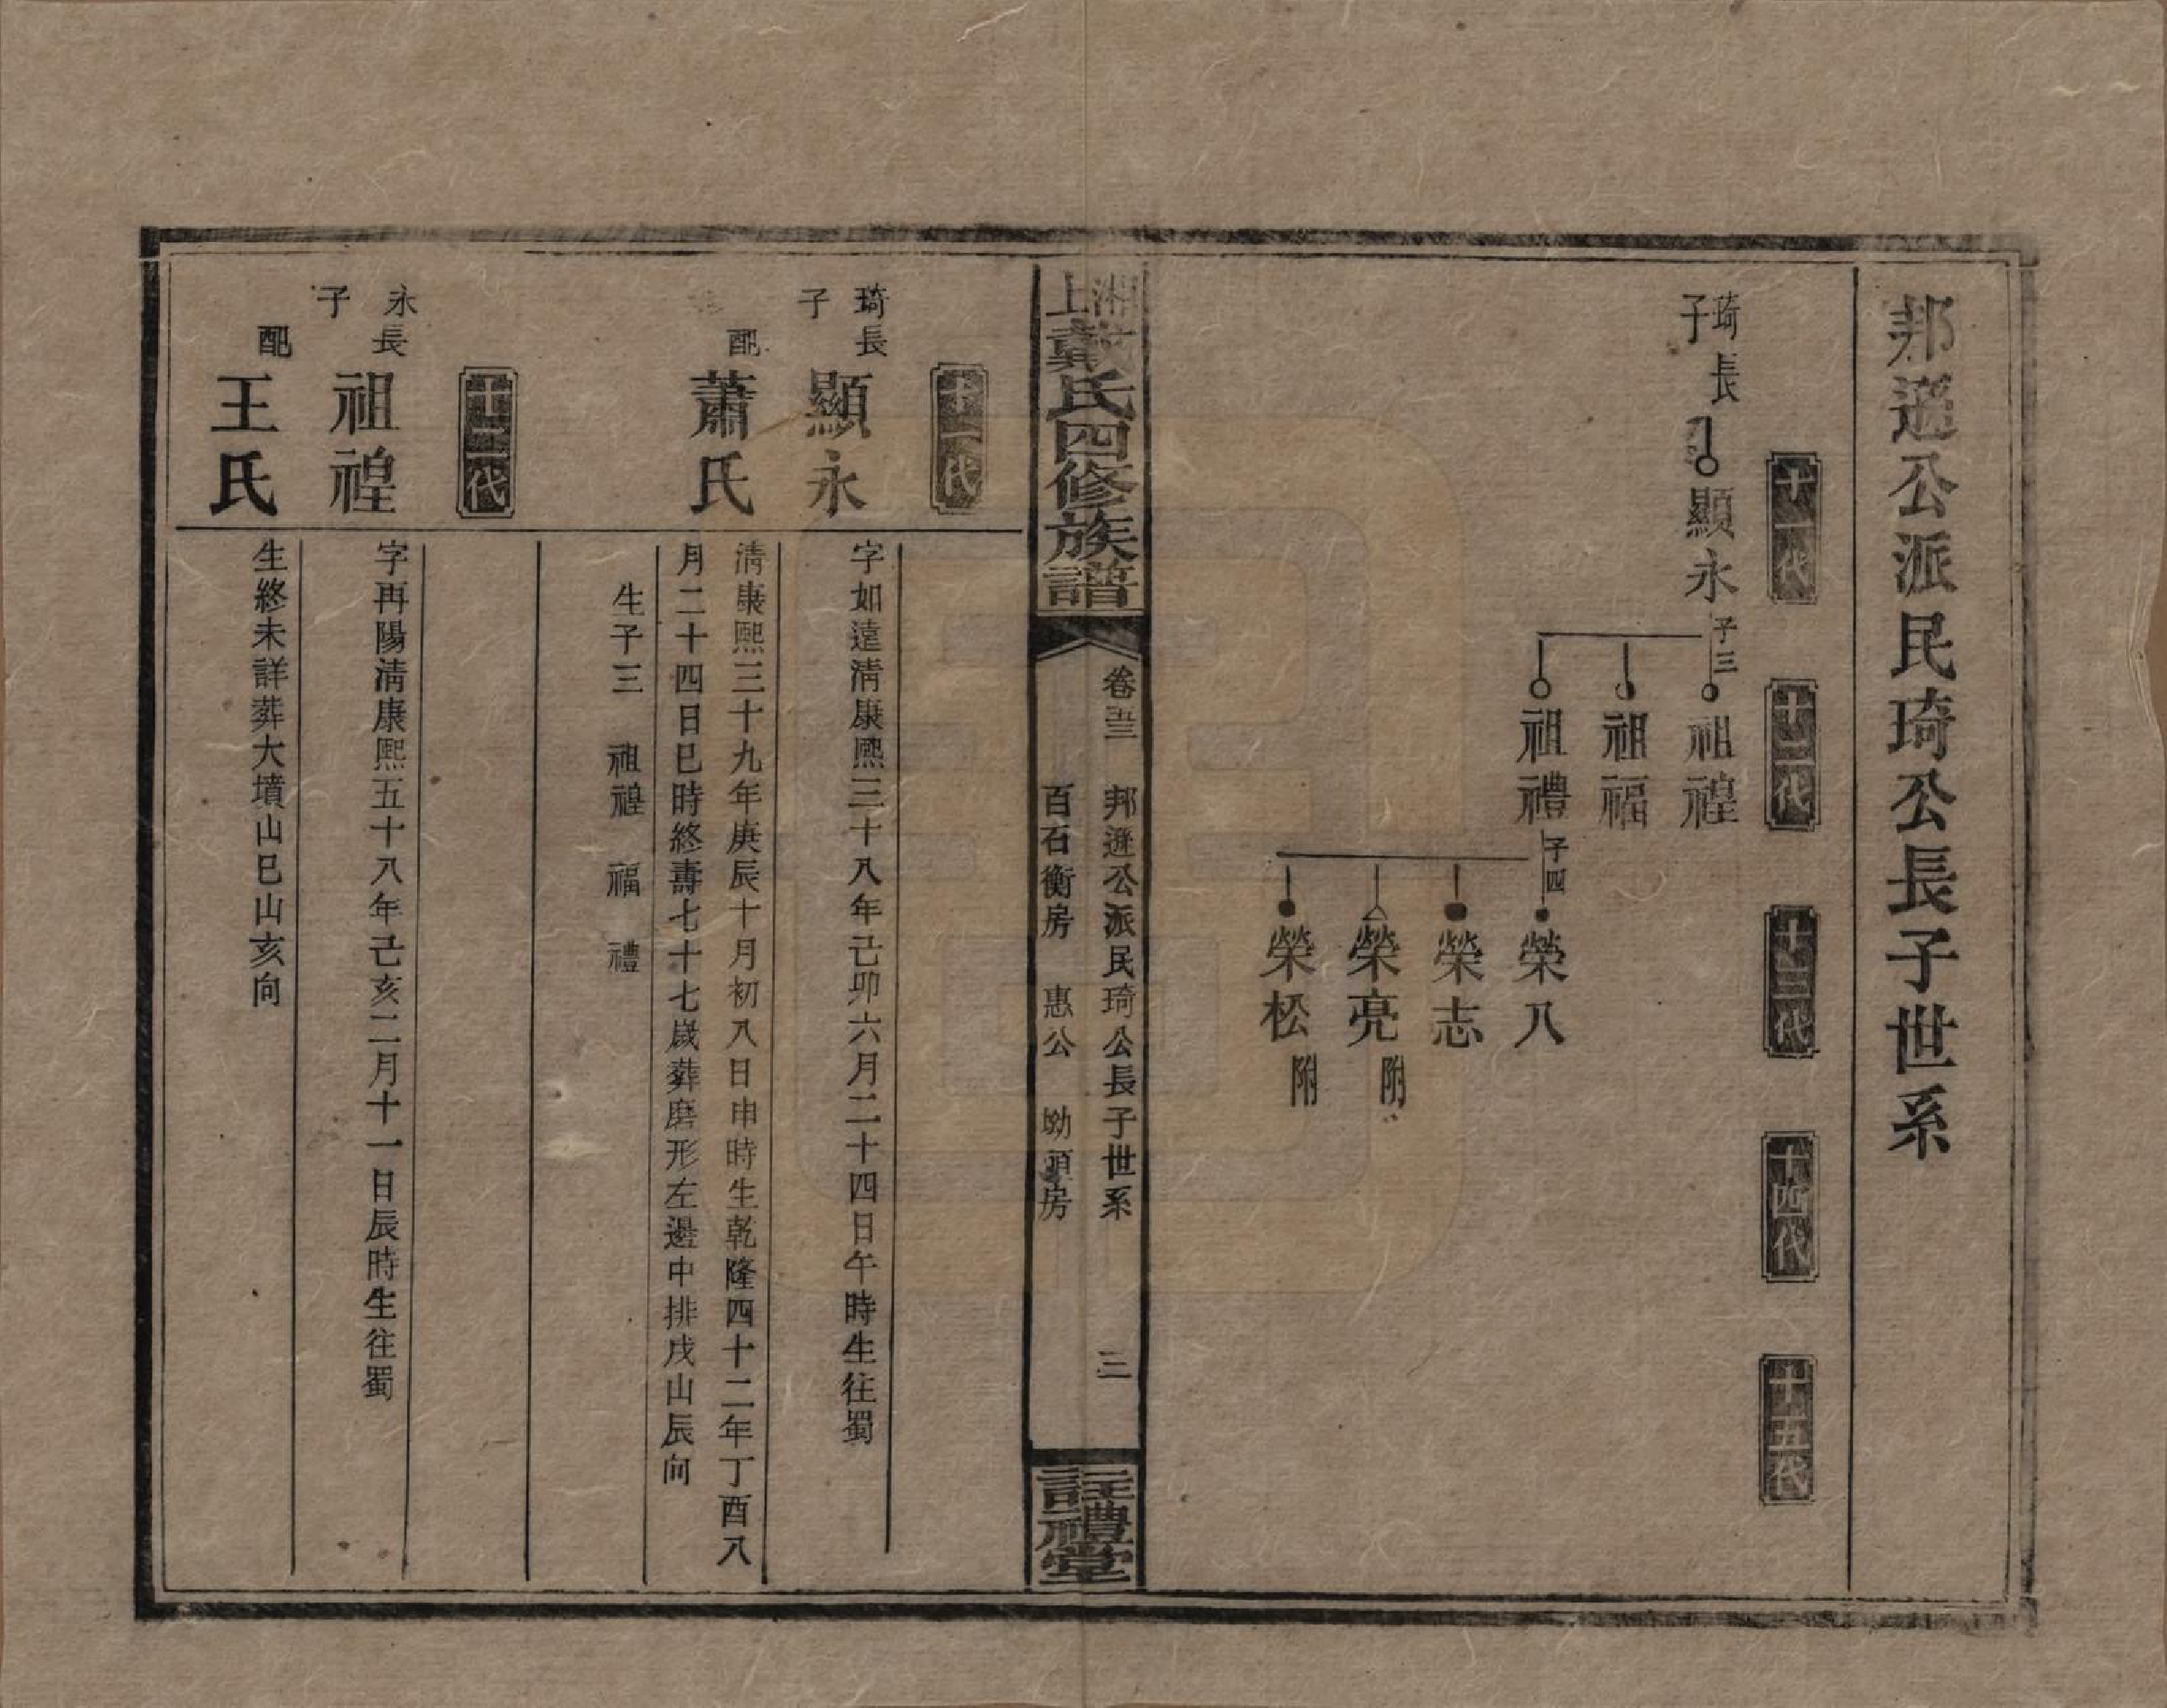 邦遴公派民琦公長子世系
十一代
十二代
十三代
十四代
十五代
琦長子
顯永
子三
祖禋
祖福
祖禮
子四
榮八
榮志
榮亮 附
榮松 附
湘上戴氏四修族譜
卷三
邦遴公派民琦公長子世系
三
百石衡房 惠公 房
註禮堂
十一代
琦長子
顯永
字如遠淸康熙三十八年己卯六月二十四日午時生往蜀
配
蕭氏
淸康熙三十九年庚辰十月初八日申時生乾隆四十二年丁酉八
月二十四日巳時終壽七十七歲葬磨形左邊中排戌山辰向
生子三 祖禋 福 禮
十二代
永長子
祖禋
字再陽淸康熙五十八年己亥二月十一日辰時生往蜀
配
王氏
生終未詳葬大墳山巳山亥向